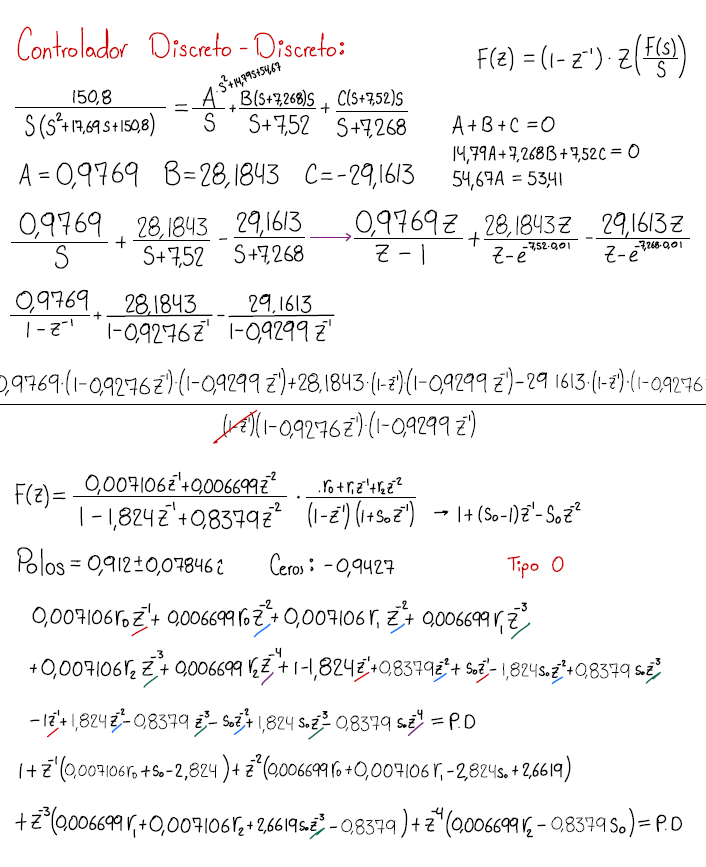 Controlador Discreto - Discreto:
F(z) = (1 - z⁻¹) · Z(F(s)/S)
150,8 / S(S²+17,69s+150,8) = A·S²+14,79s+54,67 / S + B(S+7,268)S / S+7,52 + C(S+7,52)S / S+7,268
A+B+C = 0
14,79A+7,268B+7,52C = 0
54,67A = 53,41
A = 0,9769 B = 28,1843 C = -29,1613
0,9769 / S + 28,1843 / S+7,52 - 29,1613 / S+7,268 → 0,9769z / z - 1 + 28,1843z / z-e^-7,52·0,01 - 29,1613z / z-e^-7,268·0,01
0,9769 / 1-z⁻¹ + 28,1843 / 1-0,9276z⁻¹ - 29,1613 / 1-0,9299z⁻¹
0,9769·(1-0,9276z⁻¹)·(1-0,9299z⁻¹)+28,1843·(1-z⁻¹)·(1-0,9299z⁻¹)-29 1613·(1-z⁻¹)·(1-0,9276
(1-z⁻¹)(1-0,9276z⁻¹)·(1-0,9299z⁻¹)
F(z) = 0,007106z⁻¹+0,006699z⁻² / 1-1,824z⁻¹+0,8379z⁻² · r₀+r₁z⁻¹+r₂z⁻² / (1-z⁻¹)(1+S₀z⁻¹) → 1+(S₀-1)z⁻¹-S₀z⁻²
Polos = 0,912±0,07846i Ceros: -0,9427 Tipo 0
0,007106r₀z⁻¹+ 0,006699r₀z⁻²+0,007106r₁z⁻²+ 0,006699r₁z⁻³
+0,007106r₂z⁻³+ 0,006699r₂z⁻⁴+1-1,824z⁻¹+0,8379z⁻²+ S₀z⁻¹-1,824S₀z⁻²+0,8379 S₀z⁻³
-1z⁻¹+1,824z⁻²-0,8379 z⁻³-S₀z⁻²+1,824 S₀z⁻³-0,8379 S₀z⁻⁴ = P.D
1+z⁻¹(0,007106r₀+S₀-2,824)+z⁻²(0,006699r₀+0,007106r₁-2,824S₀+2,6619)
+z⁻³(0,006699r₁+0,007106r₂+2,6619S₀z⁻³-0,8379)+z⁻⁴(0,006699r₂-0,8379S₀) = P.D